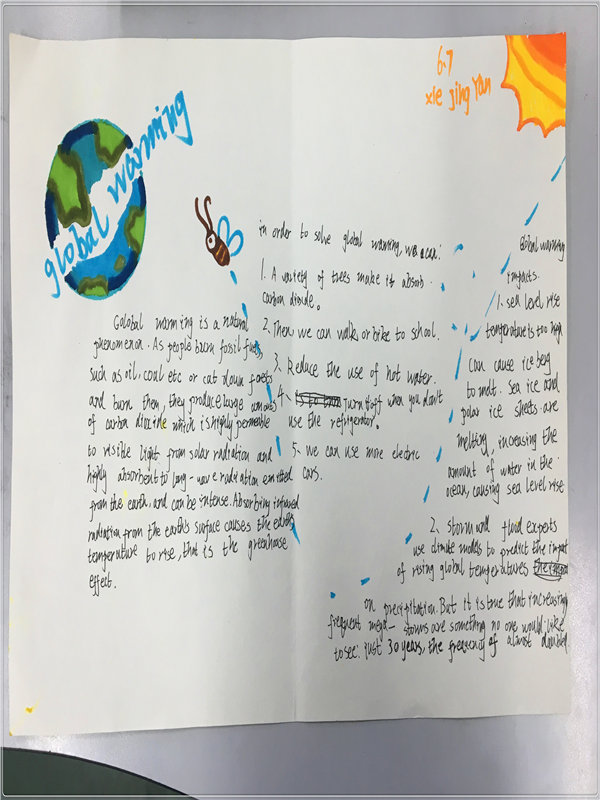 6.7
xie jing Yan
global warming
Golobal warming is a natural
phenomenon. As people burn fossil fuels,
such as oil, coal etc or cat down forests
and burn them, they produce large amounts
of carbon dioxide which is highly permeable
to visible light from solar radiation and
highly absorbent to long-wave radiation emitted
from the earth, and can be intense. Absorbing infrared
radiation from the earth's surface causes the earth's
temperature to rise, that is the greenhouse
effect.
in order to solve global warming, we can:
1. A variety of trees make it absorb
carbon dioxide。
2. Then we can walk or bike to school.
3. Reduce the use of hot water.
4. Turn it off when you don't
use the refrigerator.
5. we can use more electric
cars.
Global warming
impacts.
1. sea level rise
temperature is too high
Can cause iceberg
to melt. Sea ice and
polar ice sheets are
melting, increasing the
amount of water in the
ocean, causing sea level rise
2. Storm and flood experts
use climate models to predict the impact
of rising global temperatures
on precipitation. But it is true that increasing
frequent mega-storms are something no one would like
to see: just 30 years, the frequency of almost doubled